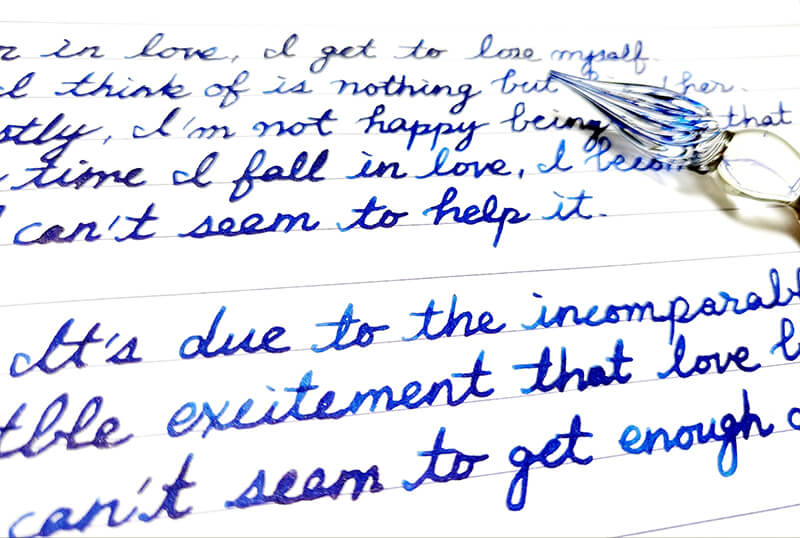 in love, I get to lose myself.
I think of is nothing but her.
I'm not happy being that
time I fall in love, I
can't seem to help it.
It's due to the
excitement that love
can't seem to get enough